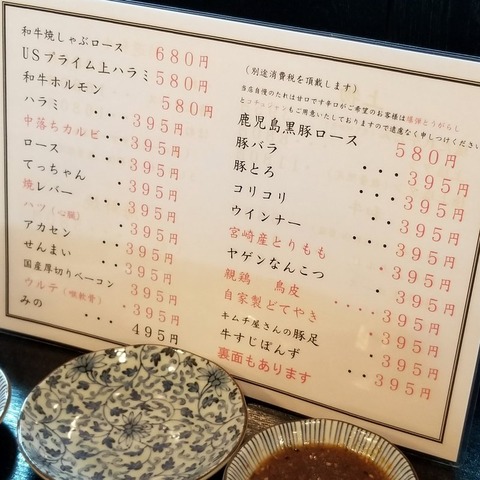 和牛焼しゃぶロース 680円
USプライム上ハラミ 580円
和牛ホルモン 580円
ハラミ ・・・395円
中落ちカルビ・・395円
ロース ・・・395円
てっちゃん ・395円
焼レバー ・・395円
ハツ(心臓) ・395円
アカセン ・・395円
せんまい ・・395円
国産厚切りベーコン 395円
ウルテ(喉軟骨) 395円
みの ・・・495円
(別途消費税を頂戴します)
当店自慢のたれは甘口です辛口がご希望のお客様は爆弾とうがらし
とコチュジャンもご用意いたしておりますので遠慮なく申しつけください
鹿児島黒豚ロース 580円
豚バラ ・・・395円
豚とろ ・・・395円
コリコリ ・・・395円
ウインナー ・・・395円
宮崎産とりもも ・395円
ヤゲンなんこつ ・395円
親鶏 鳥皮 ・・・・395円
自家製どてやき ・395円
キムチ屋さんの豚足 ・395円
牛すじぽんず ・・395円
裏面もあります